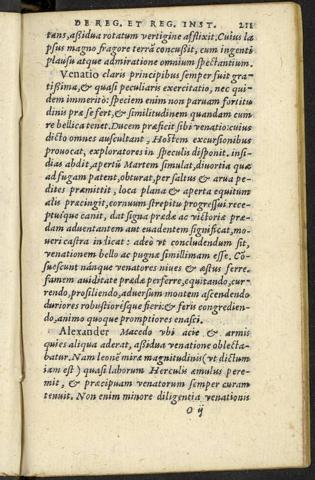 DE REG. ET REG. INST. 211
tans, aßidua rotatum vertigine afflixit. Cuius la
psus magno fragore terrā concußit, cum ingenti
plausu atque admiratione omnium spectantium.
Venatio claris principibus semper suit gra-
tißima, & quasi peculiaris exercitatio, nec qui-
dem immeritò: speciem enim non paruam fortitu
dinis præ se fert, & similitudinem quandam cum
re bellica tenet. Ducem præficit sibi venatio: cuius
dicto omnes auscultant, Hostem excursionibus
prouocat, exploratores in speculis disponit, insi-
dias abdit, apertū Martem simulat, diuortia quæ
ad fugam patent, obturat, per saltus & arua pe-
dites præmittit, loca plana & aperta equitum
alis præcingit, cornuum strepitu progressui rece-
ptuíque canit, dat signa prædæ ac victoriæ præ-
dam aduentantem aut euadentem significat, mo-
ueri castra indicat: adeò vt concludendum sit,
venationem bello ac pugnæ simillimam esse. Co
suescunt nánque venatores niues & æstus ferre,
famem auiditate prædæ perferre, equitando, cur-
rendo, prosiliendo, aduersum montem ascendendo
duriores robustiorésque fieri: & feris congredien-
do, animo quoque promptiores enasci.
Alexander Macedo vbi acie & armis
quies aliqua aderat, aßidua venatione oblecta-
batur. Nam leonē miræ magnitudinis (vt dictum
iam est) quasi laborum Herculis æmulus pere-
mit, & præcipuam venatorum semper curam
tenuit. Non enim minore diligentia venationis
O ij